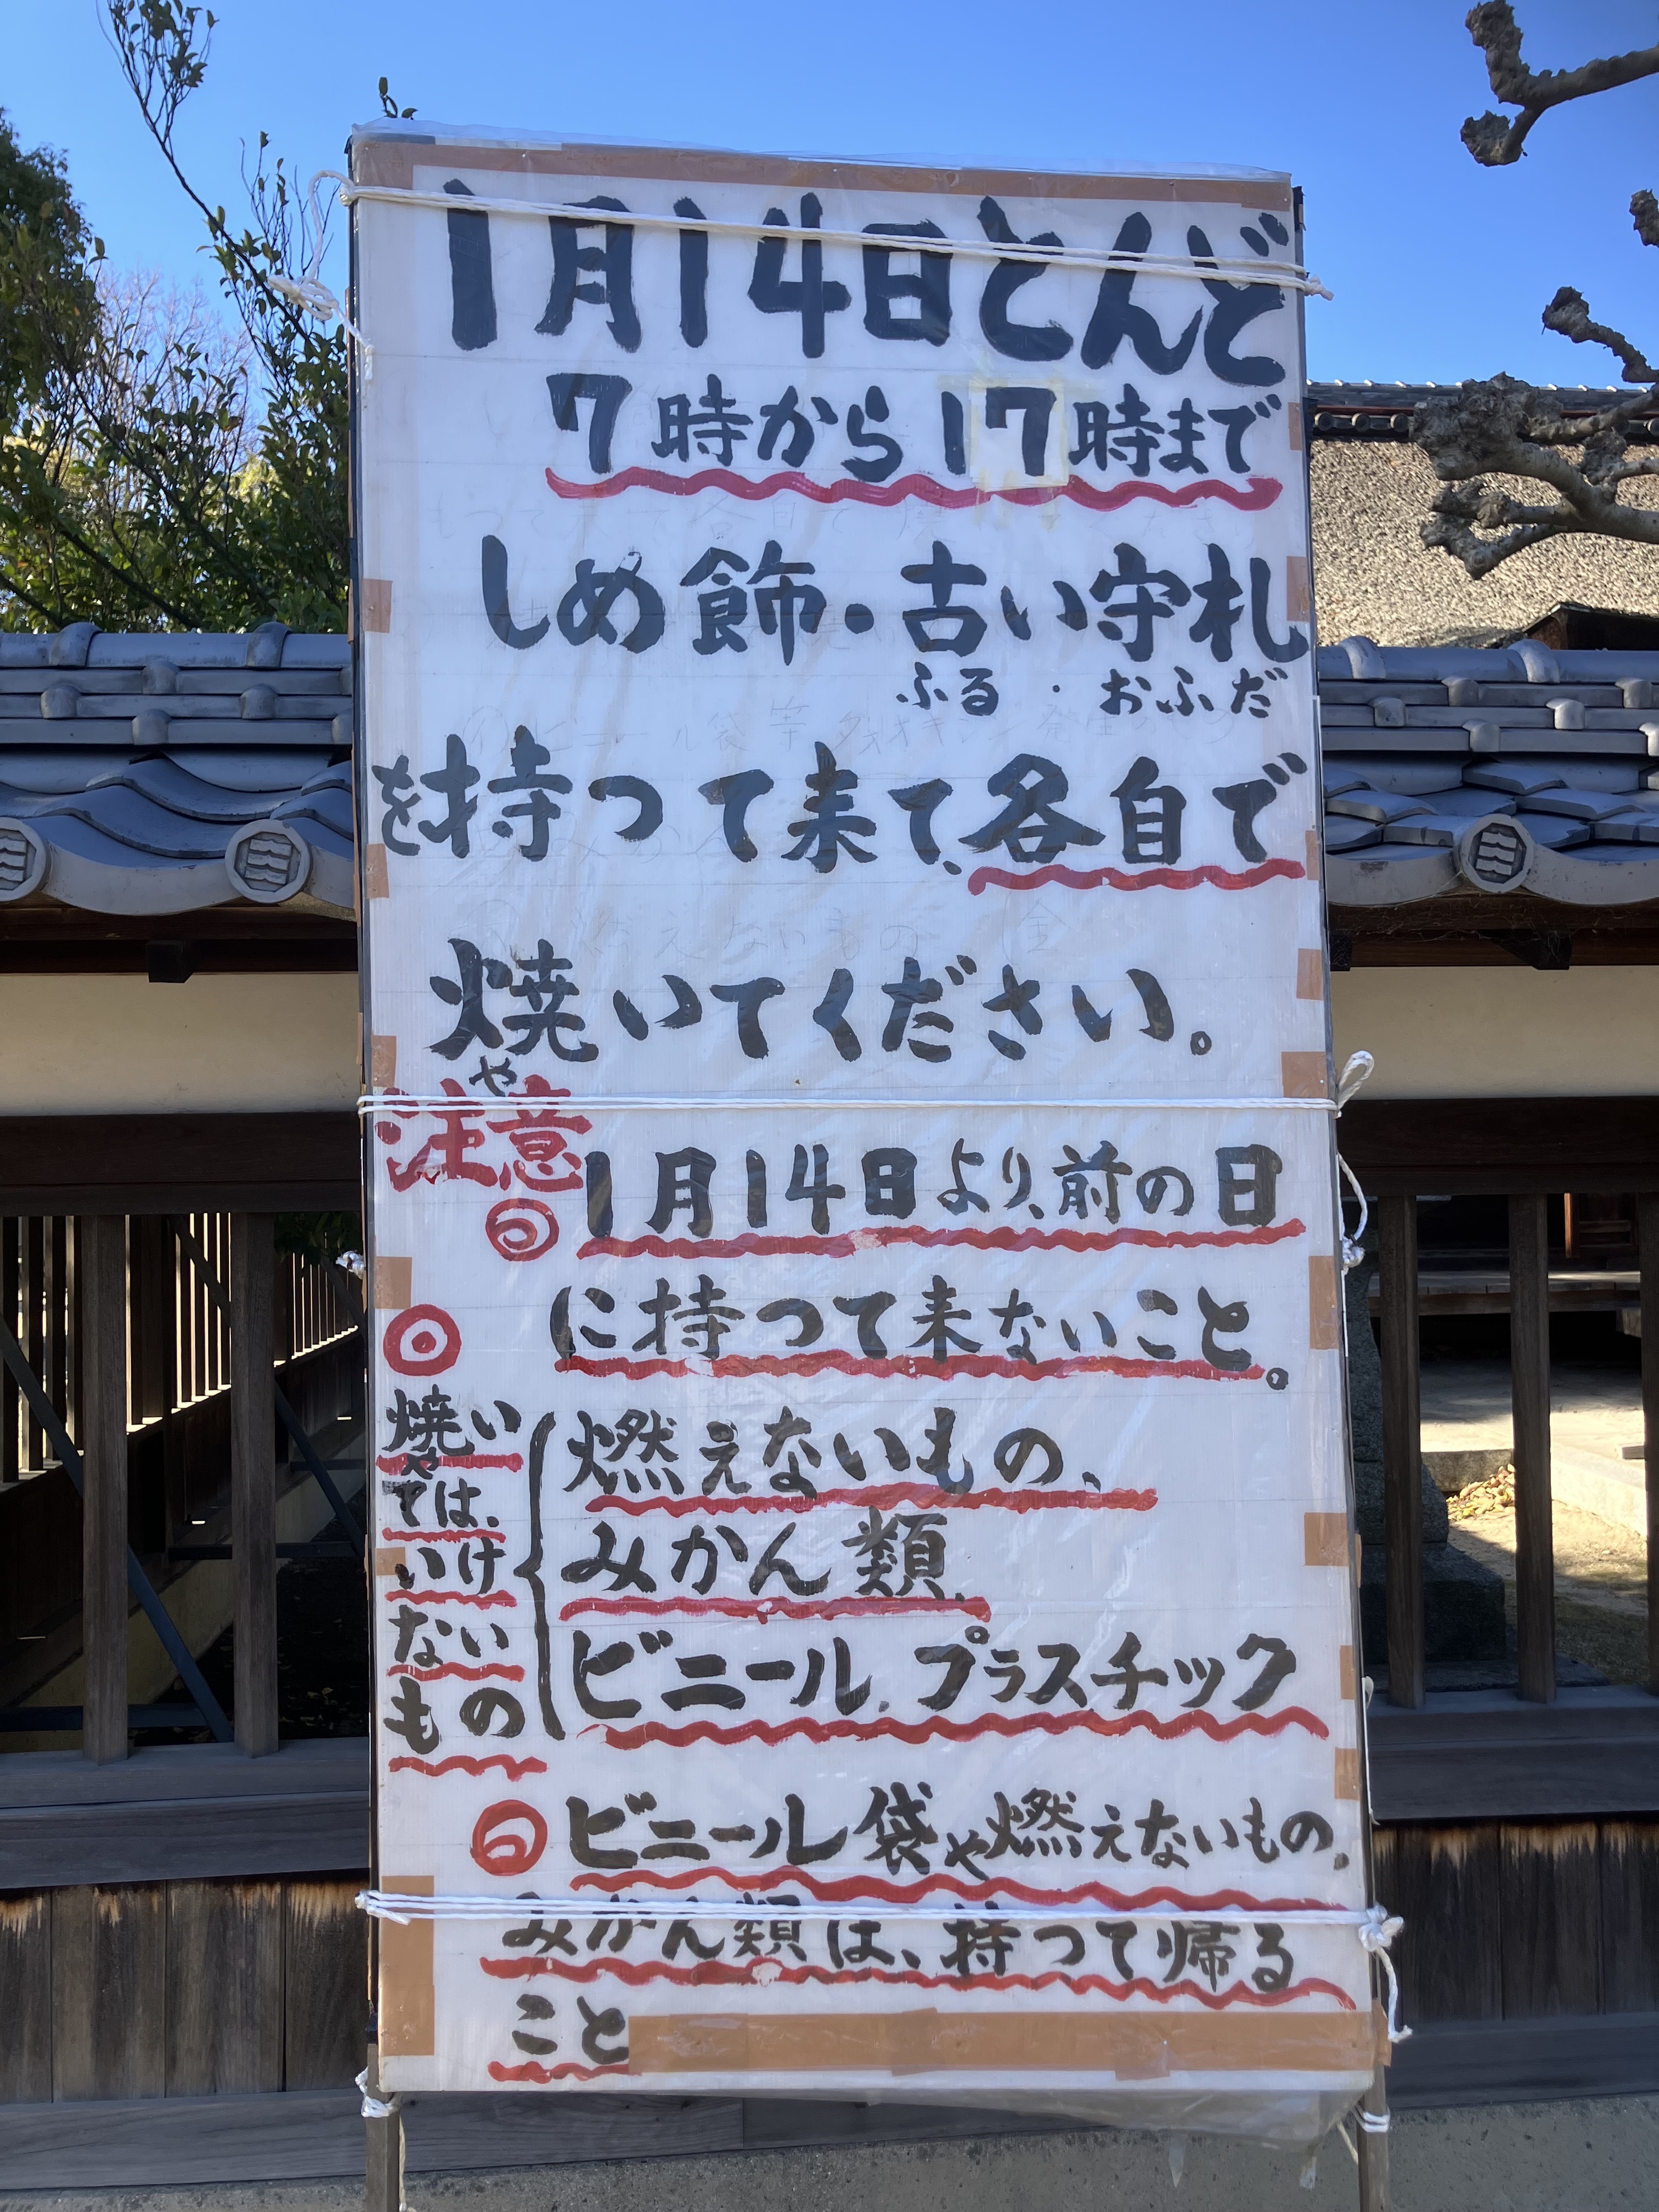 1月14日とんど
7時から17時まで
しめ飾・古い守札
ふる・おふだ
を持つて来て、各自で
焼いてください。
や
注意
1月14日より、前の日
に持つて来ないこと。
焼い
や
ては、
いけ
ない
もの
燃えないもの、
みかん類、
ビニール、プラスチック
ビニール袋や燃えないもの、
みかん類は、持つて帰る
こと